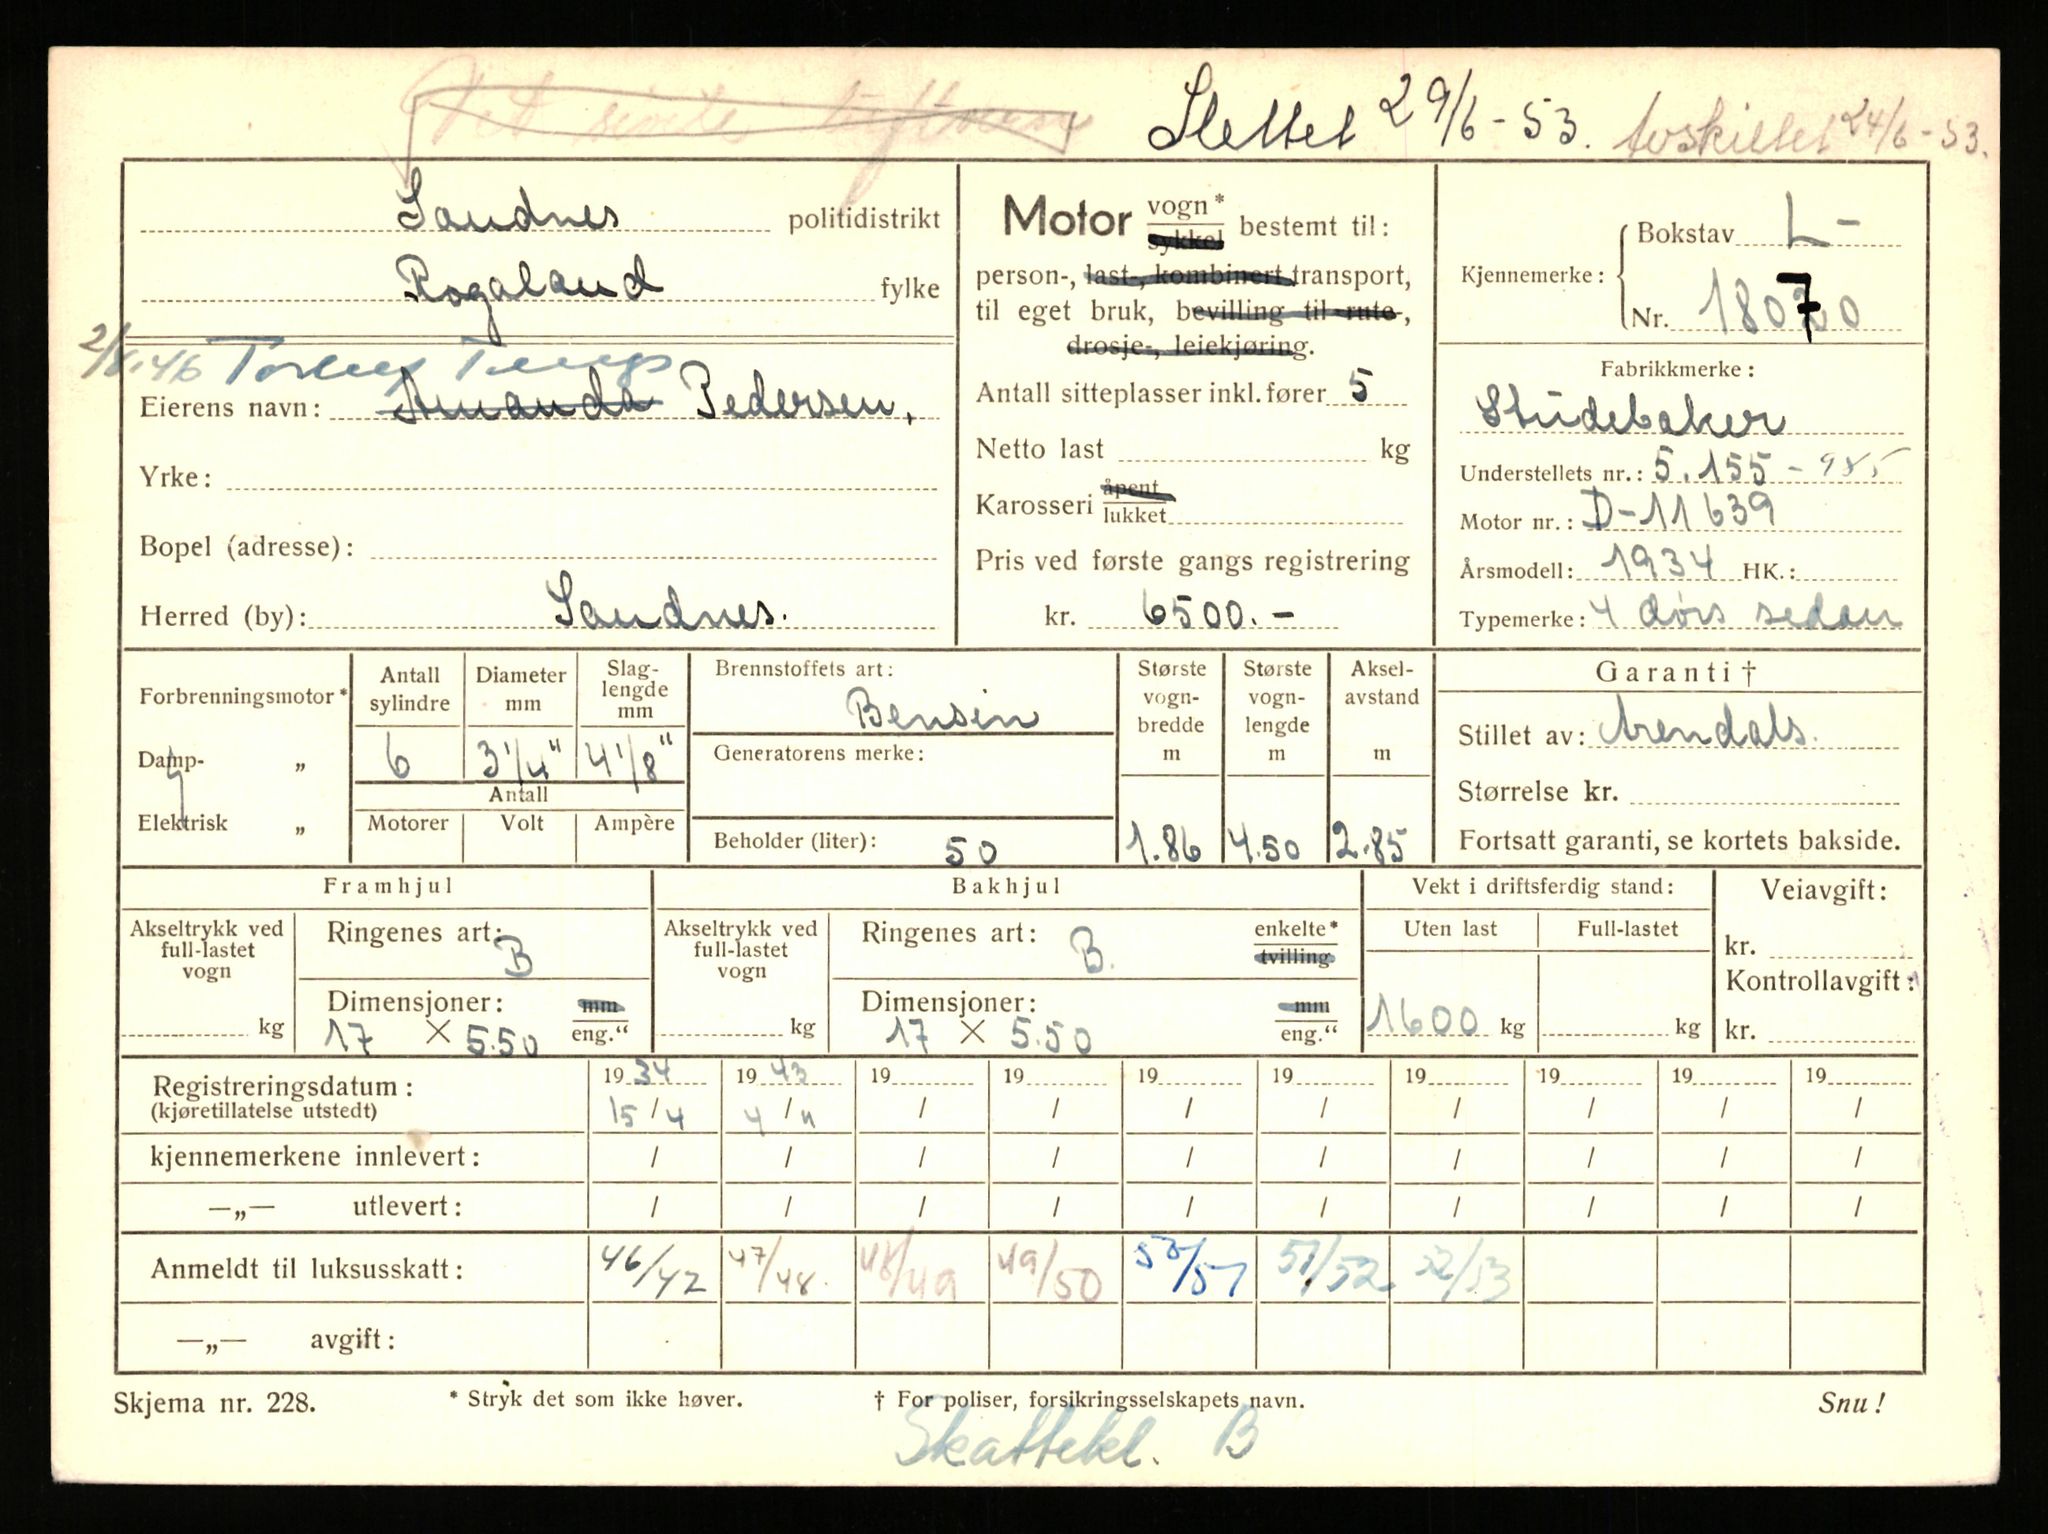 Det sivile luftvern
Slettet 29/6 - 53. Avskiltet 24/6 - 53.
Sandnes politidistrikt
Rogaland fylke
2/8.46
Eierens navn: Amanda Pedersen,
Yrke:
Bopel (adresse):
Herred (by): Sandnes.
Motor vogn* sykkel bestemt til:
person-, last-, kombinert transport,
til eget bruk, bevilling til rute-,
drosje-, leiekjøring.
Antall sitteplasser inkl. fører 5
Netto last kg
Karosseri åpent lukket
Pris ved første gangs registrering
kr. 6500.-
Kjennemerke: Bokstav L-
Nr. 18070
Fabrikkmerke:
Studebaker
Understellets nr.: 5.155-985
Motor nr.: D-11639
Årsmodell: 1934 HK.:
Typemerke: 4 dørs sedan
Forbrenningsmotor*
Damp- „
Elektrisk „
Antall sylindre
6
Diameter mm
3 1/4"
Slag-lengde mm
4 1/8"
Antall
Motorer Volt Ampère
Brennstoffets art:
Bensin
Generatorens merke:
Beholder (liter): 50
Største vogn-bredde m
1.86
Største vogn-lengde m
4.50
Aksel-avstand m
2.85
Garanti †
Stillet av: Arendals.
Størrelse kr.
Fortsatt garanti, se kortets bakside.
Framhjul
Akseltrykk ved full-lastet vogn
kg
Ringenes art: B
Dimensjoner: mm
17 × 5.50 eng."
Bakhjul
Akseltrykk ved full-lastet vogn
kg
Ringenes art: B. enkelte* tvilling
Dimensjoner: mm
17 × 5.50 eng."
Vekt i driftsferdig stand:
Uten last Full-lastet
1600 kg kg
Veiavgift:
kr.
Kontrollavgift:
kr.
Registreringsdatum: 19 34 19 43 19 19 19 19 19 19 19 19
(kjøretillatelse utstedt) 15/4 4/11 / / / / / / / /
kjennemerkene innlevert: / / / / / / / / / /
—„— utlevert: / / / / / / / / / /
Anmeldt til luksusskatt: 46/47 47/48. 48/49 49/50 50/51 51/52 52/53
—„— avgift:
Skjema nr. 228. * Stryk det som ikke høver. † For poliser, forsikringsselskapets navn. Snu!
Skattekl. B